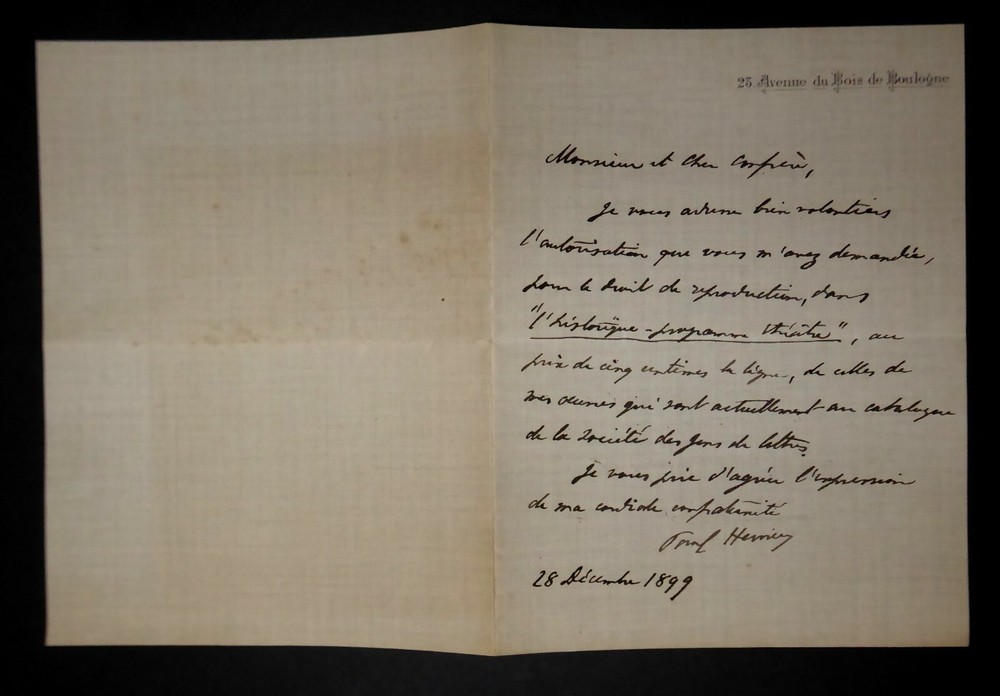 23 Avenue du Bois de Boulogne
Monsieur et cher confrère,
Je vous adresse bien volontiers
l'autorisation que vous m'avez demandée,
pour le droit de reproduction, dans
"l'historique-programme théâtre", au
prix de cinq centimes la ligne, de celles de
mes œuvres qui sont actuellement au catalogue
de la Société des gens de lettres.
Je vous prie d'agréer l'expression
de ma cordiale confraternité
Paul Hervieu
28 Décembre 1899